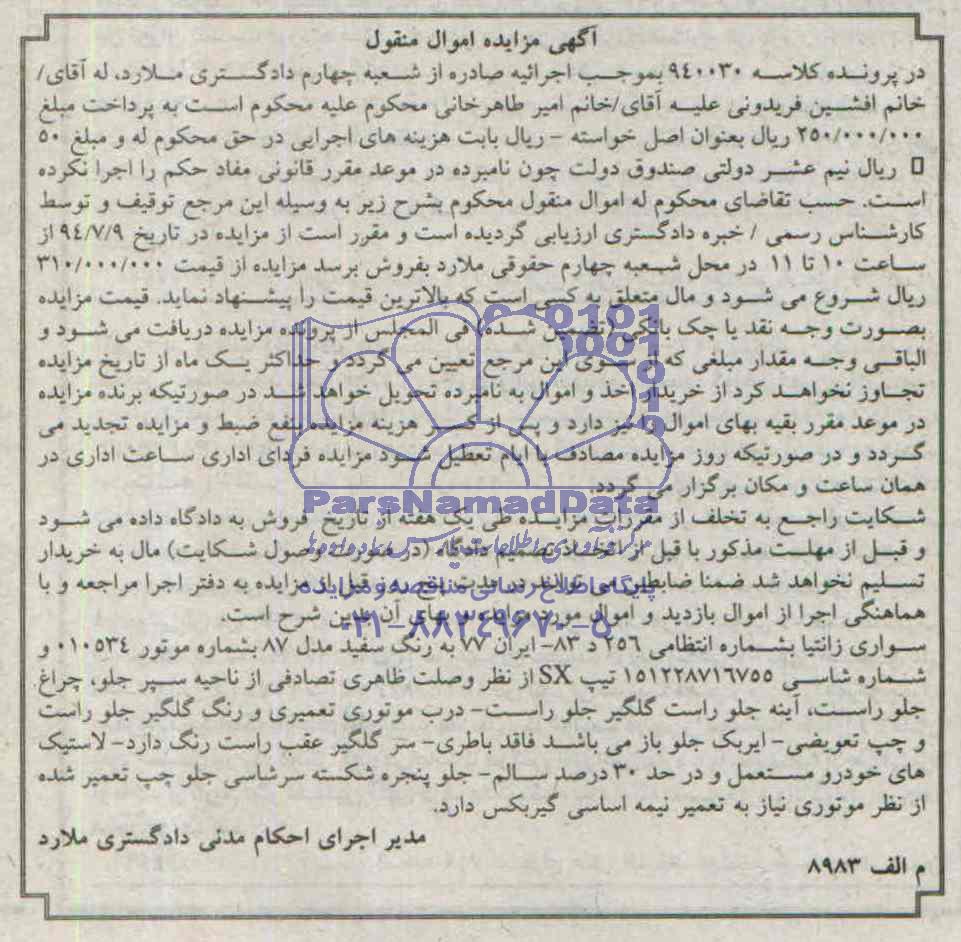 آگهی مزایده اموال منقول
در پرونده کلاسه ۹۴۰۰۳۰ بموجب اجرائیه صادره از شعبه چهارم دادگستری ملارد، له آقای/
خانم افشین فریدونی علیه آقای/خانم امیر طاهرخانی محکوم علیه محکوم است به پرداخت مبلغ
۲۵۰/۰۰۰/۰۰۰ ریال بعنوان اصل خواسته - ریال بابت هزینه های اجرایی در حق محکوم له و مبلغ ۵۰
ریال نیم عشر دولتی صندوق دولت چون نامبرده در موعد مقرر قانونی مفاد حکم را اجرا نکرده
است. حسب تقاضای محکوم له اموال منقول محکوم بشرح زیر به وسیله این مرجع توقیف و توسط
کارشناس رسمی / خبره دادگستری ارزیابی گردیده است و مقرر است از مزایده در تاریخ ۹٤/۷/۹ از
ساعت ۱۰ تا ۱۱ در محل شعبه چهارم حقوقی ملارد بفروش برسد مزایده از قیمت ۳۱۰/۰۰۰/۰۰۰
ریال شروع می شود و مال متعلق به کسی است که بالاترین قیمت را پیشنهاد نماید. قیمت مزایده
بصورت وجه نقد یا چک بانکی (تضمین شده) فی المجلس از پرونده مزایده دریافت می شود و
الباقی وجه مقدار مبلغی که از سوی این مرجع تعیین می گردد و حداکثر یک ماه از تاریخ مزایده
تجاوز نخواهد کرد از خریدار اخذ و اموال به نامبرده تحویل خواهد شد در صورتیکه برنده مزایده
در موعد مقرر بقیه بهای اموال را نپردازد و پس از کسر هزینه مزایده بنفع ضبط و مزایده تجدید می
گردد و در صورتیکه روز مزایده مصادف با ایام تعطیل شود مزایده فردای اداری ساعت اداری در
همان ساعت و مکان برگزار می گردد.
ParsNamadData
شکایت راجع به تخلف از مقررات مزایده طی یک هفته از تاریخ فروش به دادگاه داده می شود
و قبل از مهلت مذکور با قبل از اتخاذ تصمیم دادگاه (در صورت وصول شکایت) مال به خریدار
تسلیم نخواهد شد ضمنا می توانند در مدت پنج روز قبل از مزایده به دفتر اجرا مراجعه و با
پایگاه اطلاع رسانی مناقصه و مزایده
هماهنگی اجرا از اموال بازدید و اموال مورد مزایده و بهای آن بدین شرح است.
۰۲۱-۸۸۳٤۹۶۷۰-۵
سواری زانتیا بشماره انتظامی ۲۵۶ د ۸۳- ایران ۷۷ به رنگ سفید مدل ۸۷ بشماره موتور ۰۱۰۵۳٤ و
شماره شاسی ۱۵۱۲۲۸۷۱۶۷۵۵ تیپ SX از نظر وصلت ظاهری تصادفی از ناحیه سپر جلو، چراغ
جلو راست، آینه جلو راست گلگیر جلو راست- درب موتوری تعمیری و رنگ گلگیر جلو راست
و چپ تعویضی- ایربک جلو باز می باشد فاقد باطری- سر گلگیر عقب راست رنگ دارد- لاستیک
های خودرو مستعمل و در حد ۳۰ درصد سالم- جلو پنجره شکسته سرشاسی جلو چپ تعمیر شده
از نظر موتوری نیاز به تعمیر نیمه اساسی گیربکس دارد.
مدیر اجرای احکام مدنی دادگستری ملارد
م الف ۸۹۸۳